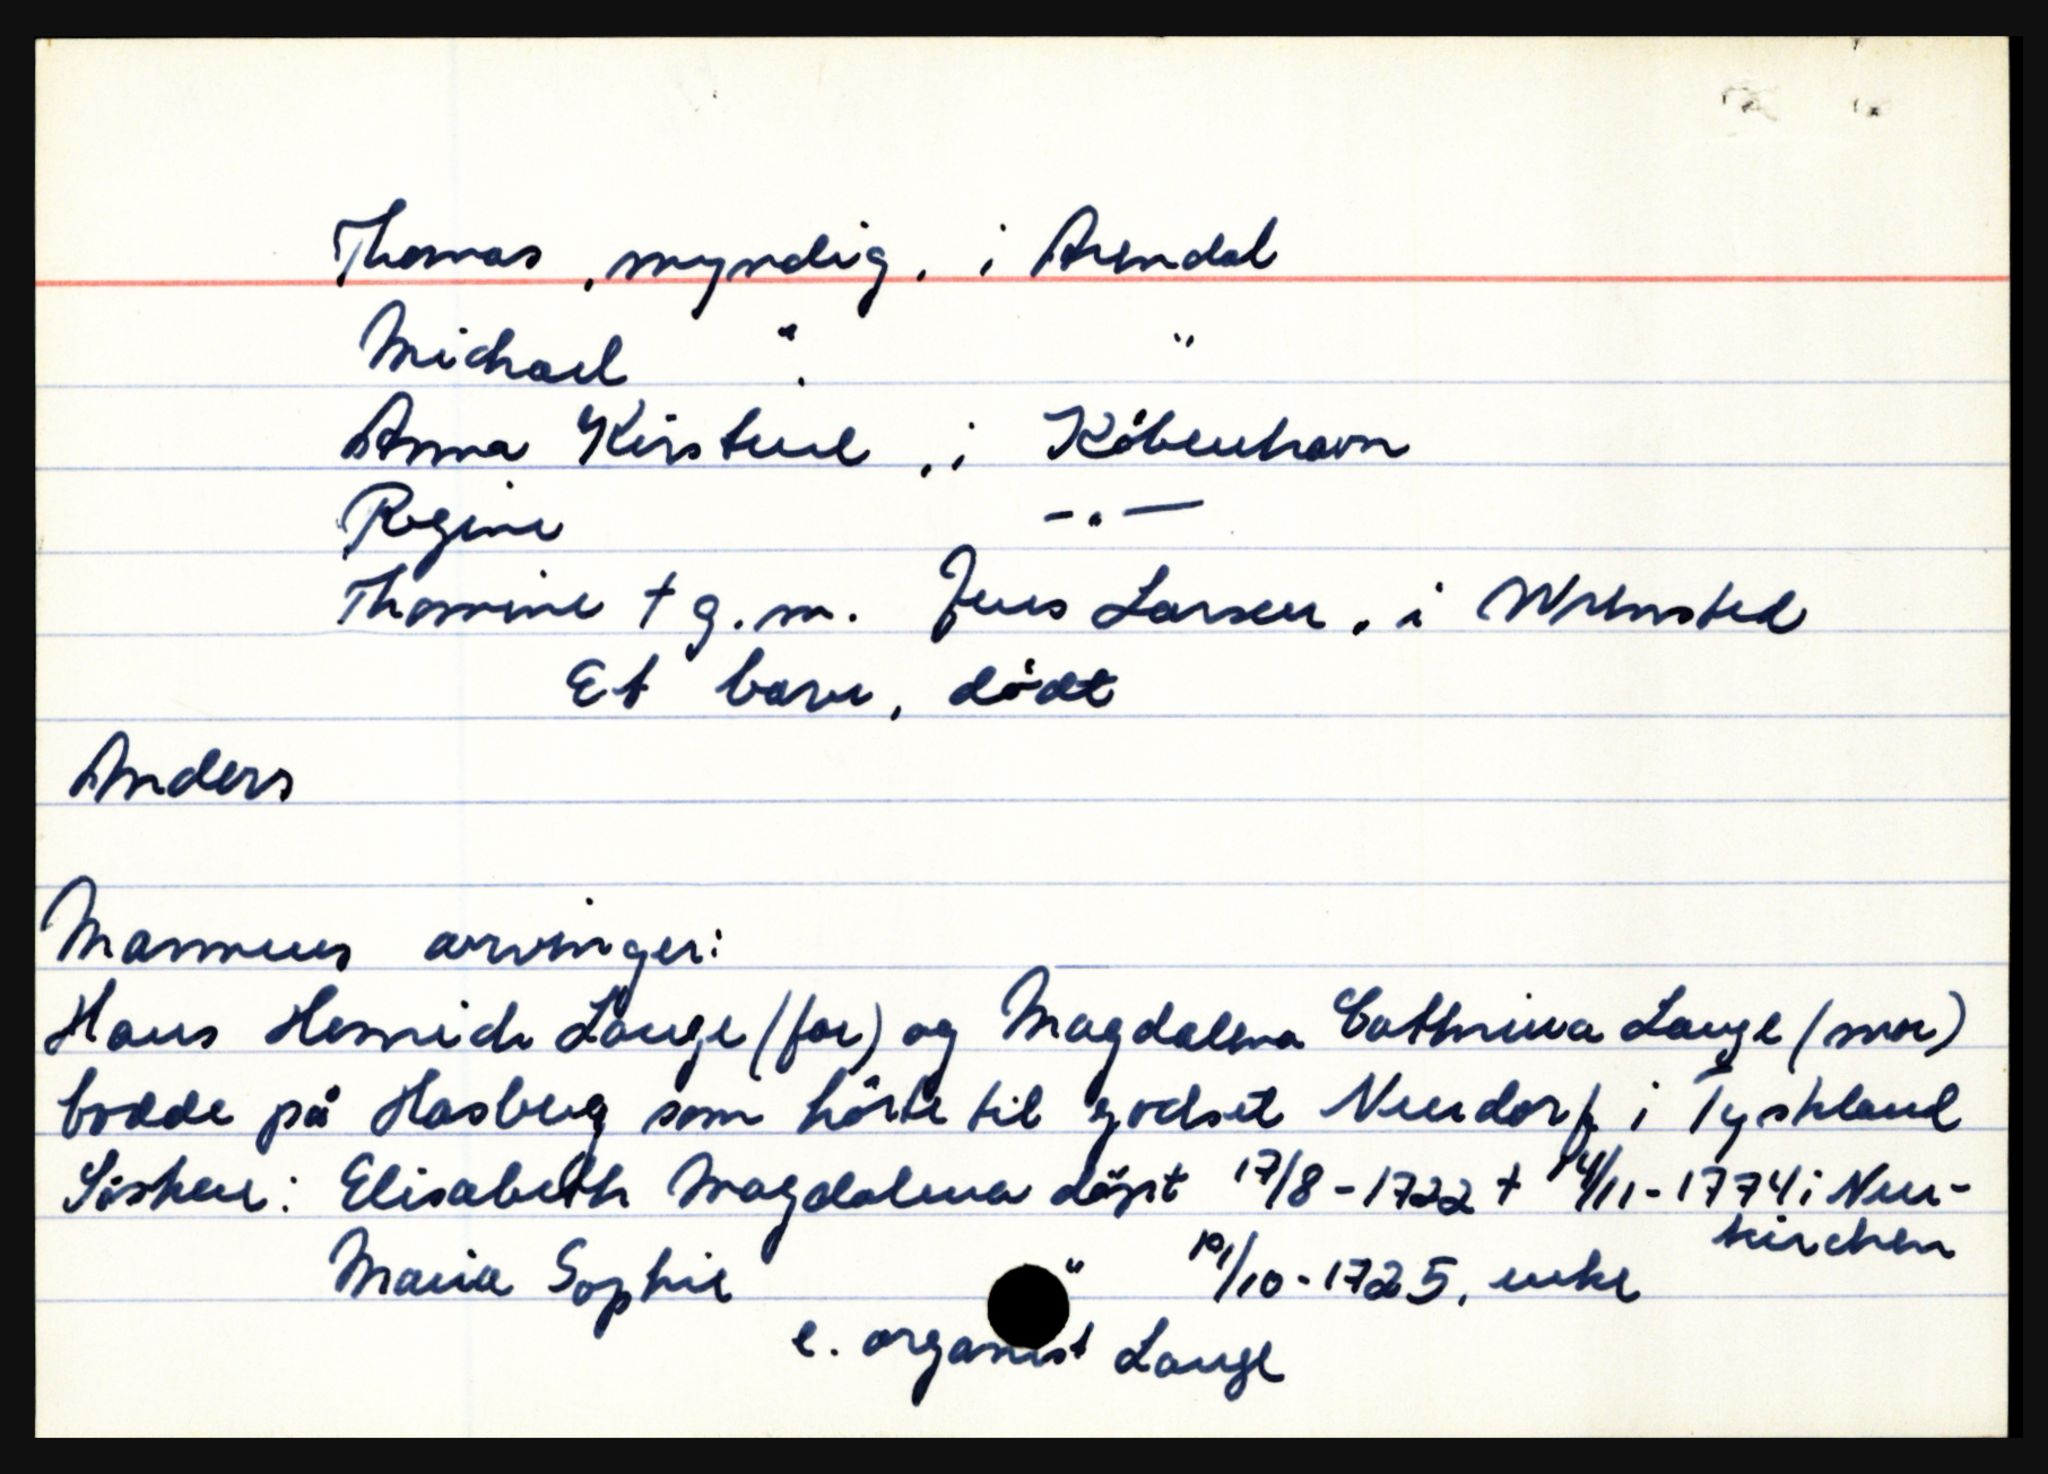 Thomas, myndig, i Arendal
Michael ". "
Anna Kirstine, i København
Regine -"-
Thomine † g.m. Jens Larsen, i Wrensted
Et barn, dødt
Anders
Mannens arvinger:
Hans Henrich Lange (far) og Magdalena Cathrina Lange (mor)
bodde på Hasberg som hörte til godset Neudorf i Tyskland
Sösken: Elisabeth Magdalena döpt 17/8-1722 † 14/11-1774 i Neu-
kirchen
Maria Sophie " /10-1725, enke
e. organist Lange